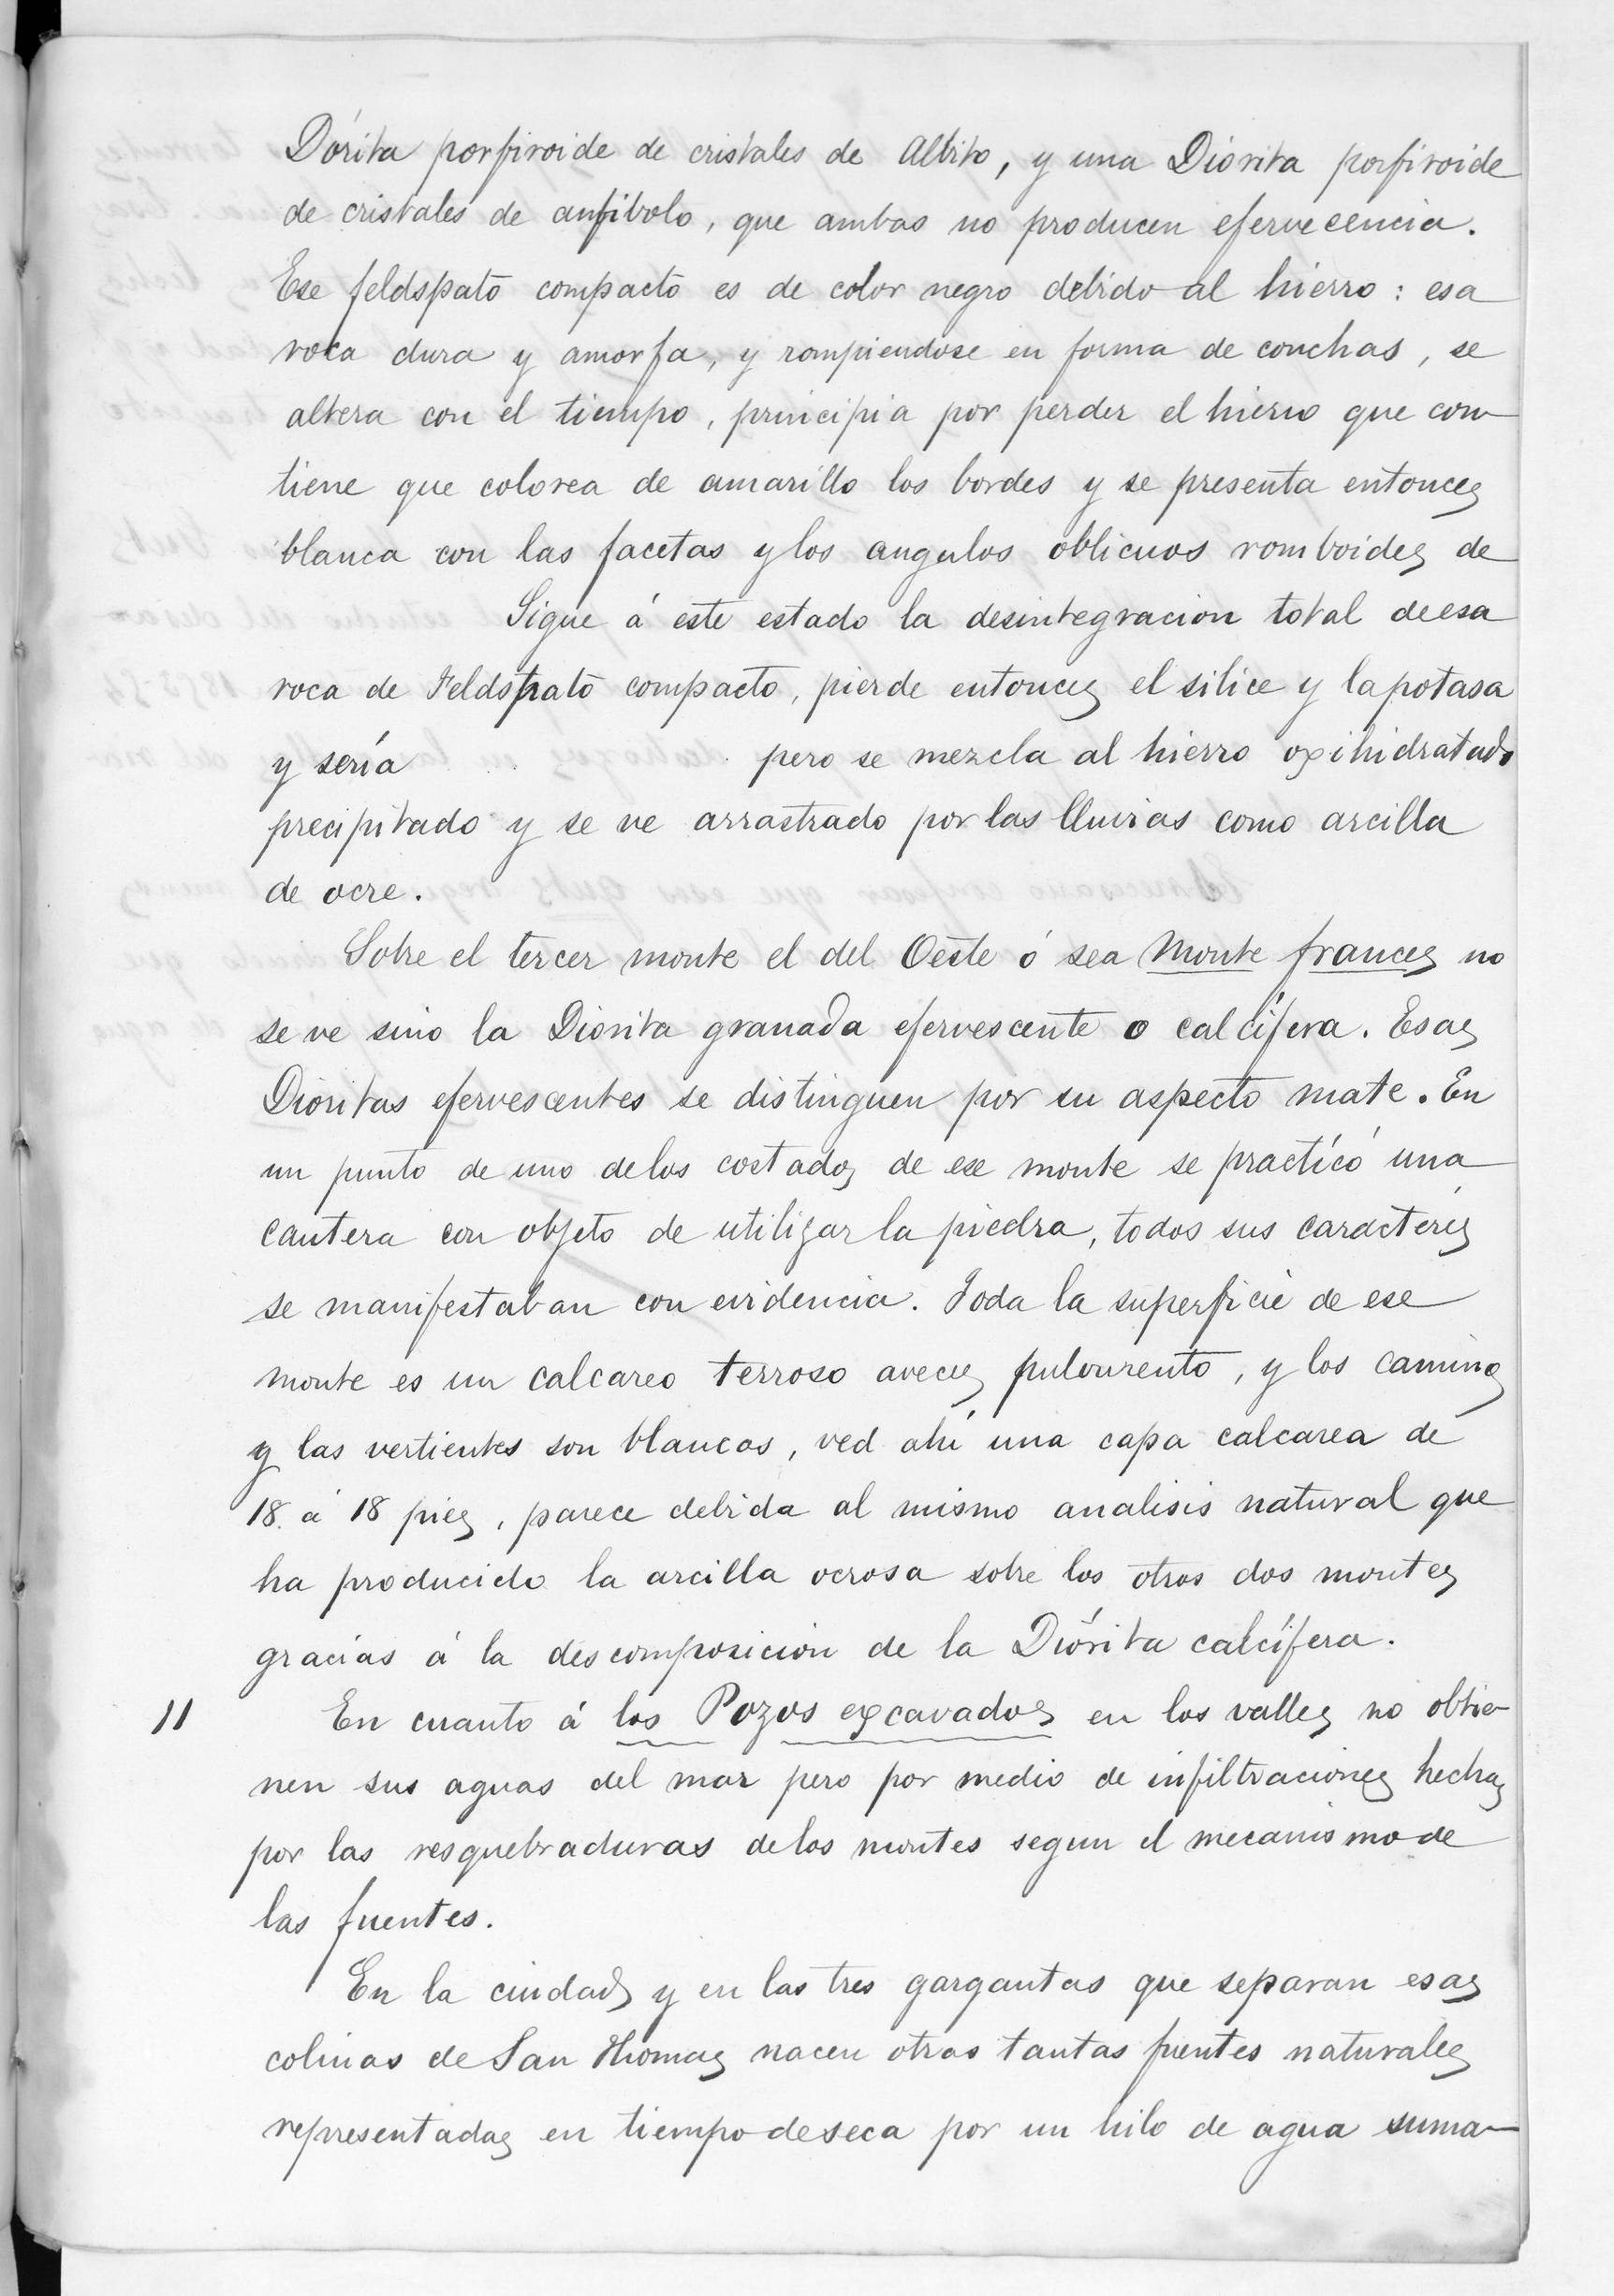 Dórita porfiroide de cristales de Albito, y una Diorita porfiroide
de cristales de anfibolo, que ambas no producen efervecencia.
Ese feldspato compacto es de color negro debido al hierro: esa
roca dura y amorfa, y rompiendose en forma de conchas, se
altera con el tiempo, principia por perder el hierro que con-
tiene que colorea de amarillo los bordes y se presenta entonces
blanca con las facetas y los angulos oblicuos romboides de
Sigue á este estado la desintegracion total de esa
roca de Feldspato compacto, pierde entonces el silice y la potasa
y sería pero se mezcla al hierro oxihidratado
precipitado y se ve arrastrado por las lluvias como arcilla
de ocre.
Sobre el tercer monte el del Oeste ó sea Monte frances no
se ve sino la Diorita granada efervescente o calcífera. Esas
Dioritas efervescentes se distinguen por su aspecto mate. En
un punto de uno de los costados de ese monte se practicó una
cantera con objeto de utilizar la piedra, todos sus caracteres
se manifestaban con evidencia. Toda la superficie de ese
monte es un calcareo terroso aveces pulvurento, y los caminos
y las vertientes son blancos, ved ahí una capa calcarea de
18 á 18 pies, parece debida al mismo analisis natural que
ha producido la arcilla ocrosa sobre los otros dos montes
gracias á la descomposicion de la Diórita calcífera.
11 En cuanto á los Pozos excavados en los valles no obtie-
nen sus aguas del mar pero por medio de infiltraciones hechas
por las resquebraduras de los montes segun el mecanismo de
las fuentes.
En la ciudad y en las tres gargantas que separan esas
colinas de San Thomas nacen otras tantas fuentes naturales
representadas en tiempo de seca por un hilo de agua suma-